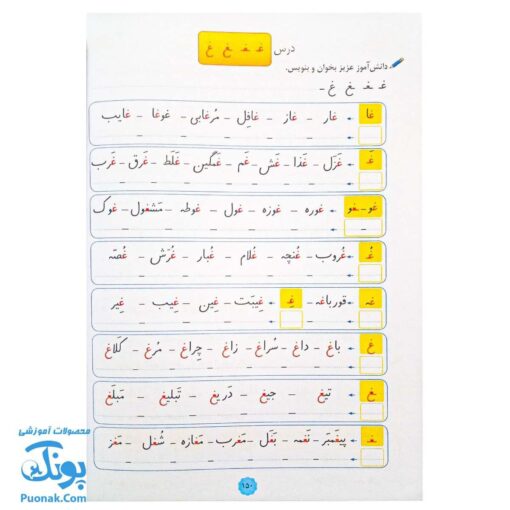 درس غـ ـغـ ـغ غ
دانش‌آموز عزیز بخوان و بنویس.
غـ ـغـ ـغ غ –
غا غار – غاز – غافِل – مُرغابی – غوغا – غایب
غَـ غَزَل – غَذا – غَش – غَم – غَمگین – غَلَط – غَرق – غَرب
غو – ـغو غوره – غوزه – غول – غوطه – مَشغول – غوک
غُـ غُروب – غُنچه – غُلام – غُبار – غُرّش – غُصّه
غه قورباغه – غِـ غِیبَت – غِین – غِیب – غِیر
غ باغ – داغ – سُراغ – زاغ – چِراغ – مُرغ – کَلاغ
ـغ تیغ – جیغ – دَریغ – تَبلیغ – مَبلَغ
ـغـ پِیغَمبَر – نَغمه – بَغَل – مَغرِب – مَغازه – شُغل – مَغز
۱۵۰
محصولات آموزشی
پونک
Puonak.Com